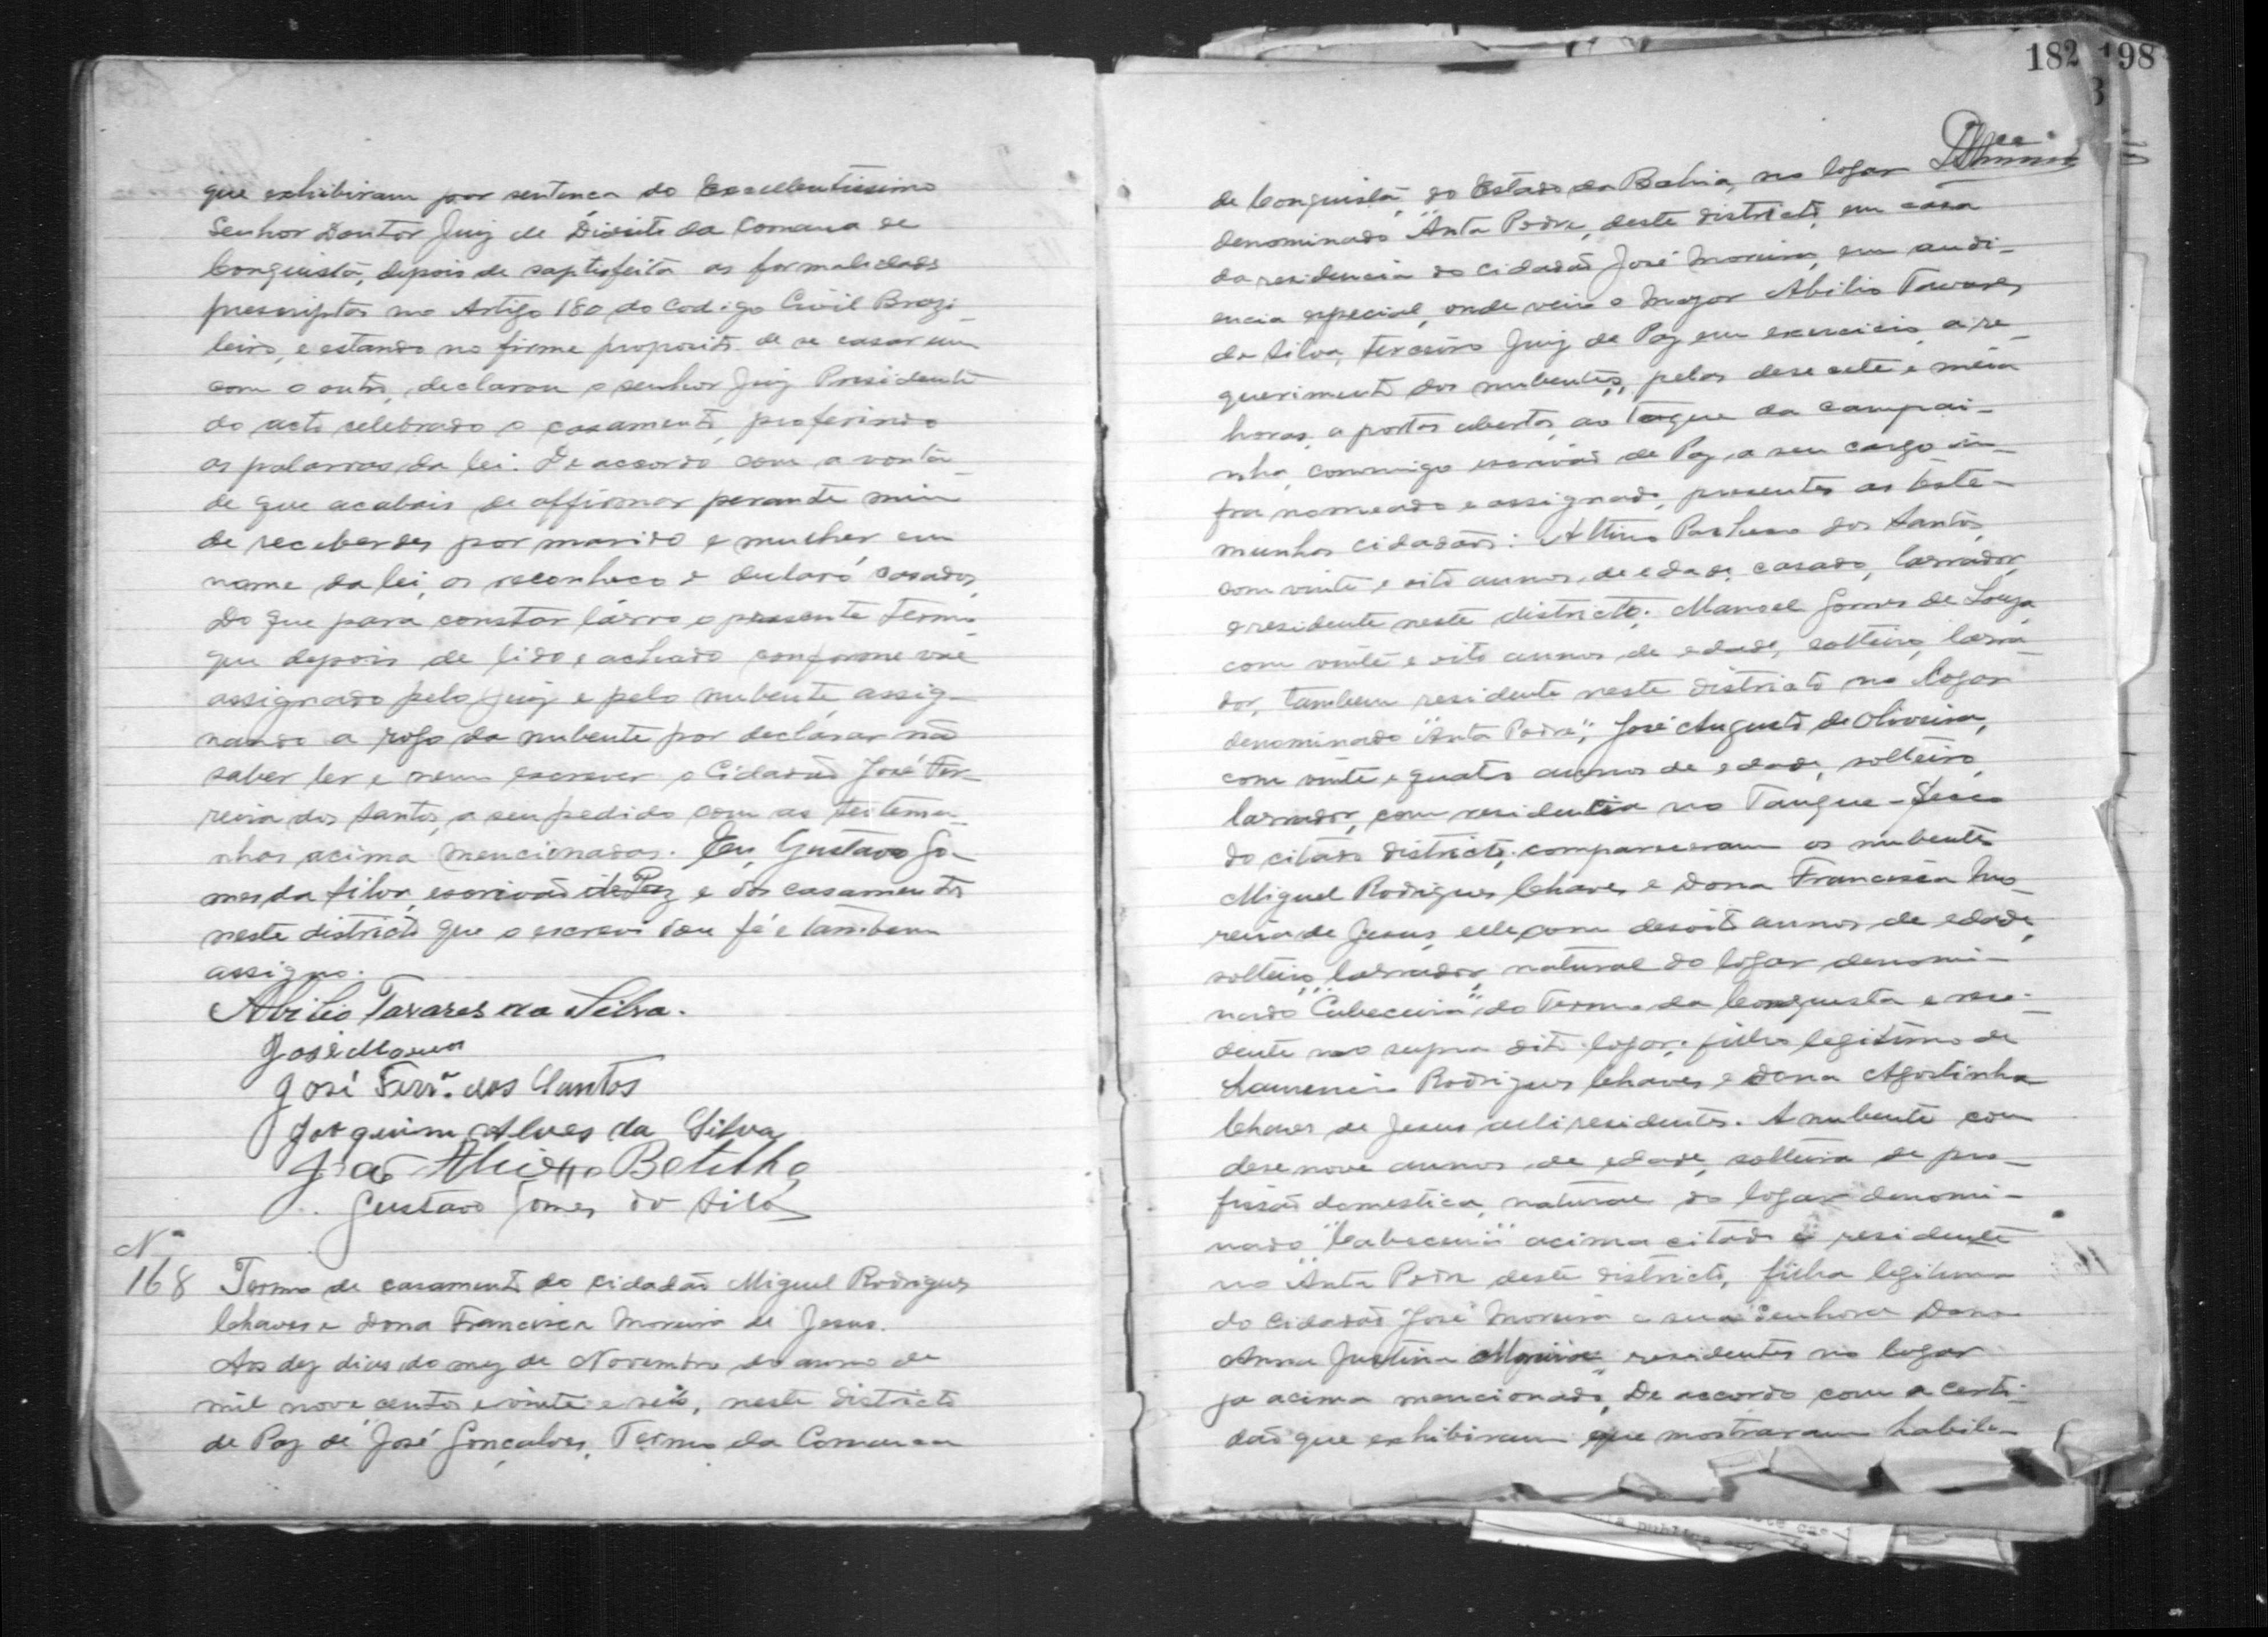 que exhibiram por sentença do Excellentissimo
Senhor Doutor Juiz de Direito da Comarca de
Conquista, depois de saptisfeita as formalidads
prescriptas no Artigo 180 do Codigo Civil Brazi_
leiro, e estando no firme proposito de se casar um
com o outro, declarou o senhor Juiz Presidente
do acto celebrado o casamento, proferindo
as palavras da lei. De accordo com a vonta_
de que acabais de affirmar perante mim
de receberdes por marido e mulher, em
nome da lei, os reconheço e declaro casados,
Do que para constar lavro o presente termo,
que depois de lido e achado conforme vae
assignado pelo juiz e pelo nubente, assig_
nando a rogo da nubente por declarar não
saber ler e nem escrever o Cidadão José Fer_
reira dos Santos, a seu pedido com as testemu_
nhas acima mencionadas. Eu, Gustavo Go_
mes da Silva, escrivão de Paz e dos casamentos
neste districto que o escrevi dou fé e tambem
assigno.
Abilio Tavares da Silva.
José
José Ferrª. dos Santos
Joaquim Alves da Silva
João Botelho
Gustavo Gomes da Silva
Nº
168 Termo de casamento do cidadão Miguel Rodrigues
Chaves e Dona Francisca Moreira de Jesus.
Aos dez dias do mez de Novembro do anno de
mil nove centos e vinte e seis, neste districto
de Paz de José Gonçalves, Termo da Comarca
182 198
3
de Conquista, do Estado da Bahia, no logar
denominado "Anta Podre, deste districto, em casa
da residencia do cidadão José Moreira, em audi_
encia especial, onde veio o Major Abilio Tavares
da Silva, terceiro Juiz de Paz em exercicio a re_
querimento dos nubentes, pelas desesete e meia
horas, a portas abertas, ao toque da campai_
nha, commigo escrivão de Paz, a seu cargo in_
fra nomeado e assignado, presentes as teste_
munhas cidadãos: Altino Pacheco dos Santos,
com vinte e oito annos de edade, casado, lavrador,
e residente neste districto; Manoel Gomes de Souza,
com vinte e oito annos de edade, solteiro, lavra_
dor, tambem residente neste districto no logar
denominado "Anta Podre"; José Augusto de Oliveira,
com vinte e quatro annos de edade, solteiro,
lavrador, com residencia no Tanque-Seco
do citado districto, compareceram os nubentes
Miguel Rodrigues Chaves e Dona Francisca Mo_
reira de Jesus, elle com desoito annos de edade,
solteiro, lavrador, natural do logar denomi_
nado "Cabeceira" do Termo da Conquista e resi_
dente no supra dito logar; filho legitimo de
Rodrigues Chaves e Dona Agostinha
Chaves de Jesus alli residentes. A nubente com
desenove annos de edade, solteira de pro_
fissão domestica, natural do logar denomi_
nado "Cabeceira" acima citado e residente
no "Anta Podre deste districto, filha legitima
do Cidadão José Moreira e sua Senhora Dona
Anna Justina residentes no logar
ja acima mencionado, De accordo com a certi_
dão que exhibiram que mostraram habili_